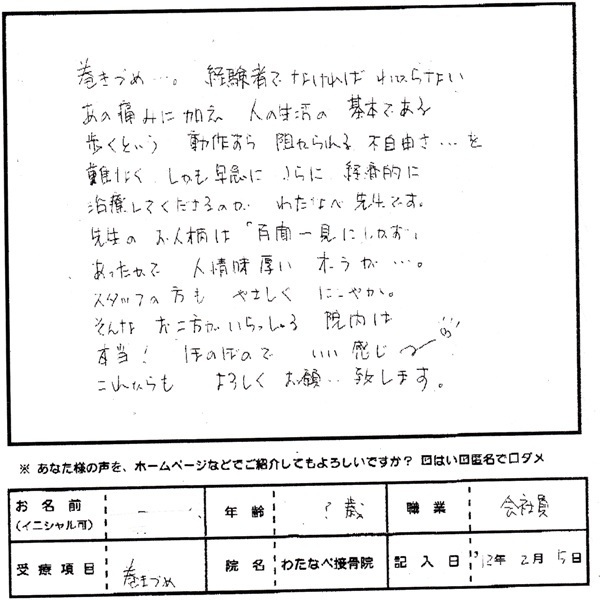 巻きづめ…。 経験者でなければ わからない
あの痛みに加え 人の生活の 基本である
歩くという 動作すら 阻れられる 不自由さ…を
難なく しかも早急に さらに 経済的に
治療してくださるのが わたなべ先生です。
先生の お人柄は「百聞一見にしかず」
あったかで 人情味厚い オーラが…。
スタッフの方も やさしく にこやか。
そんな お二方がいらっしゃる 院内は
本当! ほのぼので いい感じ〜
これからも よろしく お願い致します。
※ あなた様の声を、ホームページなどでご紹介してもよろしいですか? ☑はい☑匿名で口ダメ
お名前 年齢 ?歳 職業 会社員
(イニシャル可)
受療項目 巻きづめ 院名 わたなべ接骨院 記入日 '12年 2月 15日